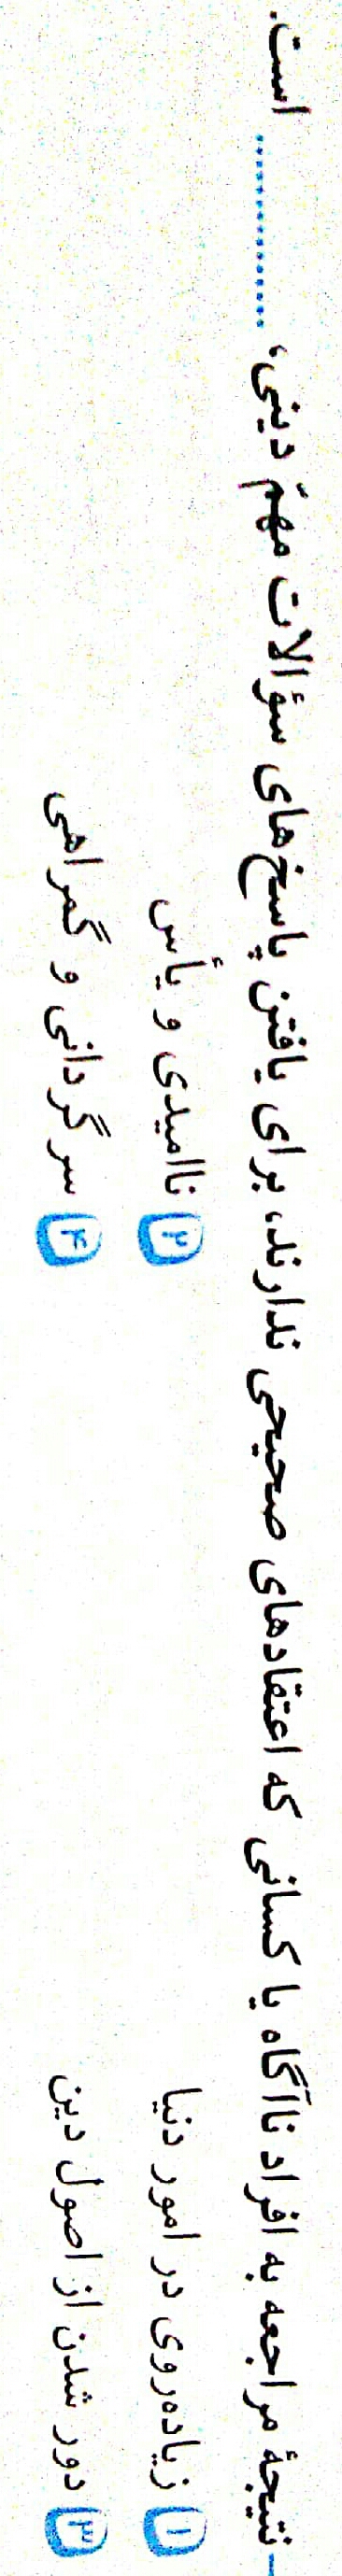 - نتیجهٔ مراجعه به افراد ناآگاه یا کسانی که اعتقادهای صحیحی ندارند، برای یافتن پاسخ‌های سؤالات مهمّ دینی، .............. است.
۱ زیاده‌روی در امور دنیا ۲ ناامیدی و یأس
۳ دور شدن از اصول دین ۴ سرگردانی و گمراهی